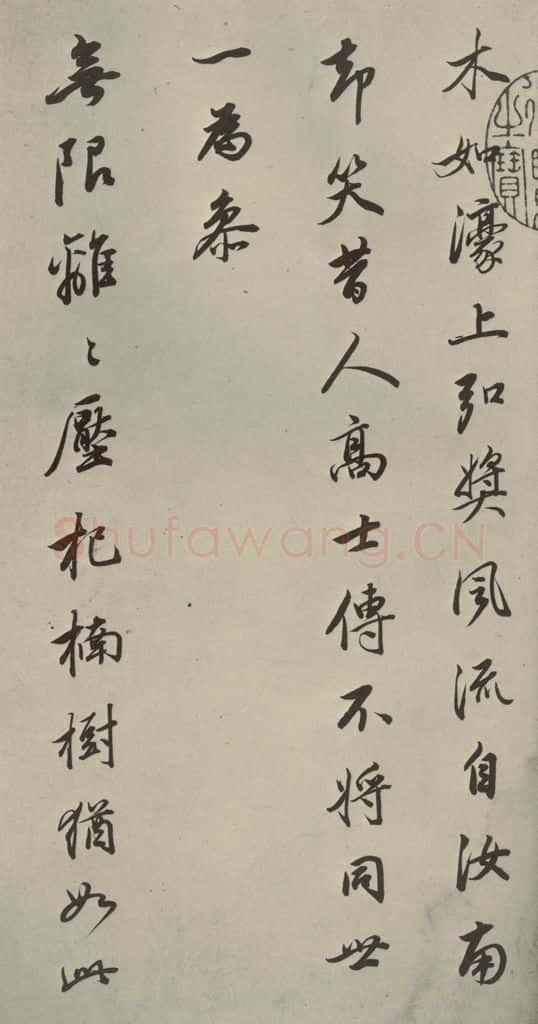 木如濠上弘獎風流自汝南
却笑昔人高士傳不將同世
一為參
無限離〻壓杞楠樹猶如此
Shufawang.CN